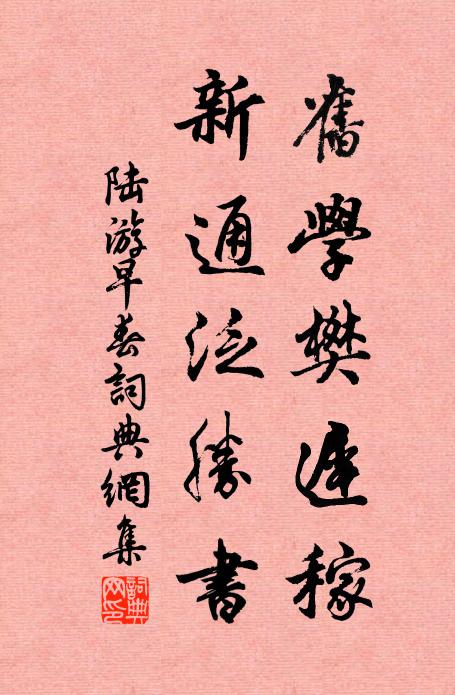 舊學樊遲稼
新通泛勝書
陸游早春詞典網集
詞典网印